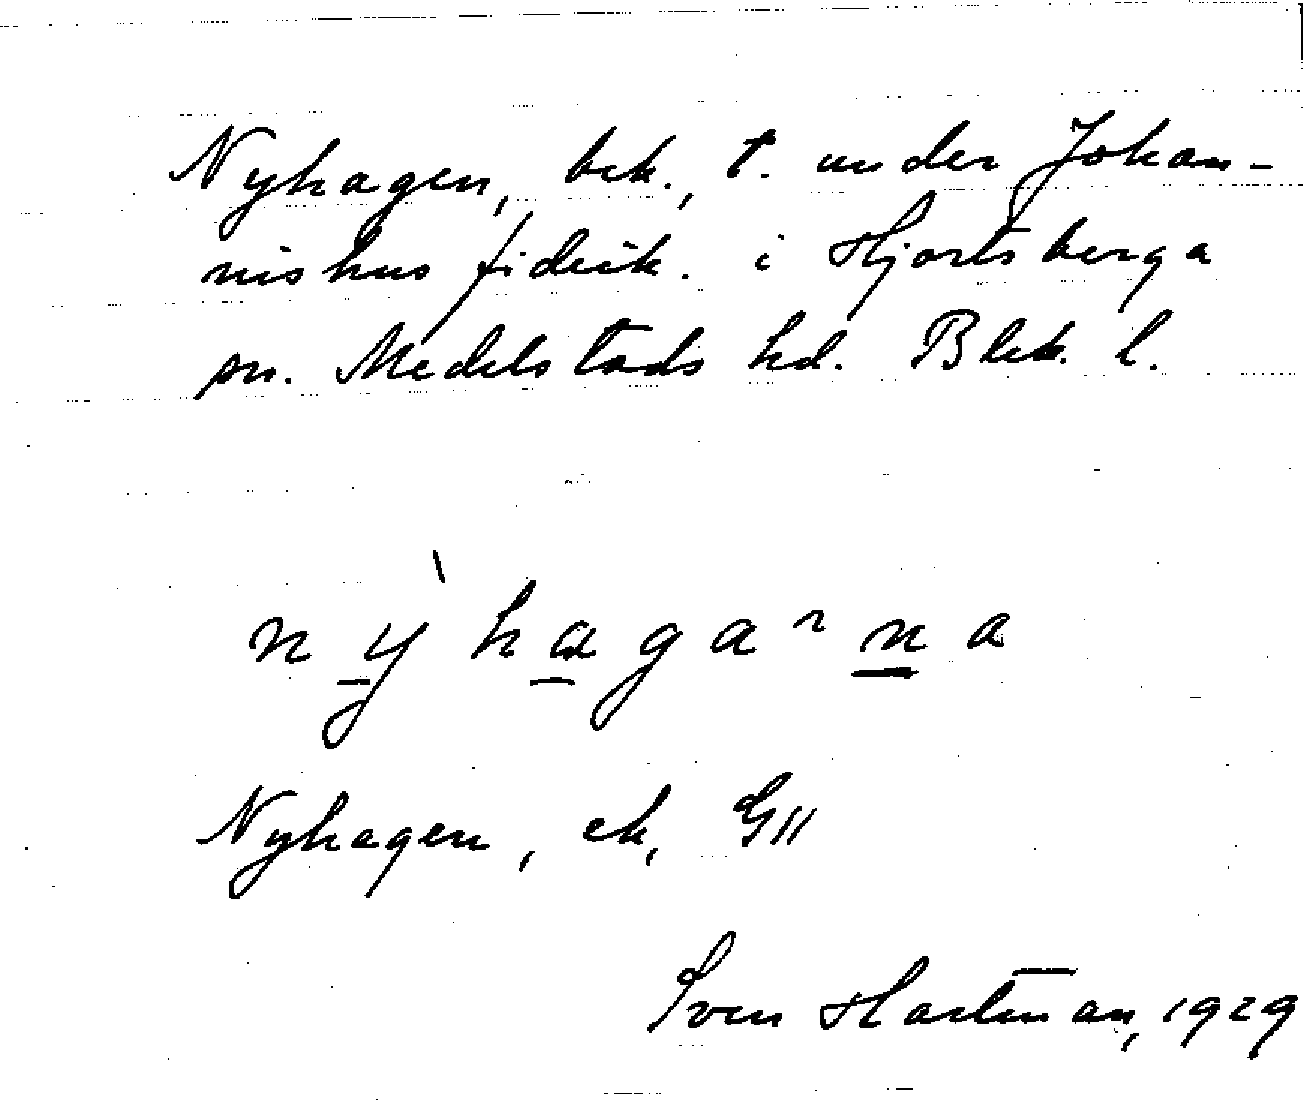 Nyhagen, bek., t. under Johan-
nishus fideik. i Hjortsberga
sn. Medelstads hd. Blek. l.
nỳhagaʳna
Nyhagen, ek, GII
Sven Hartman, 1929